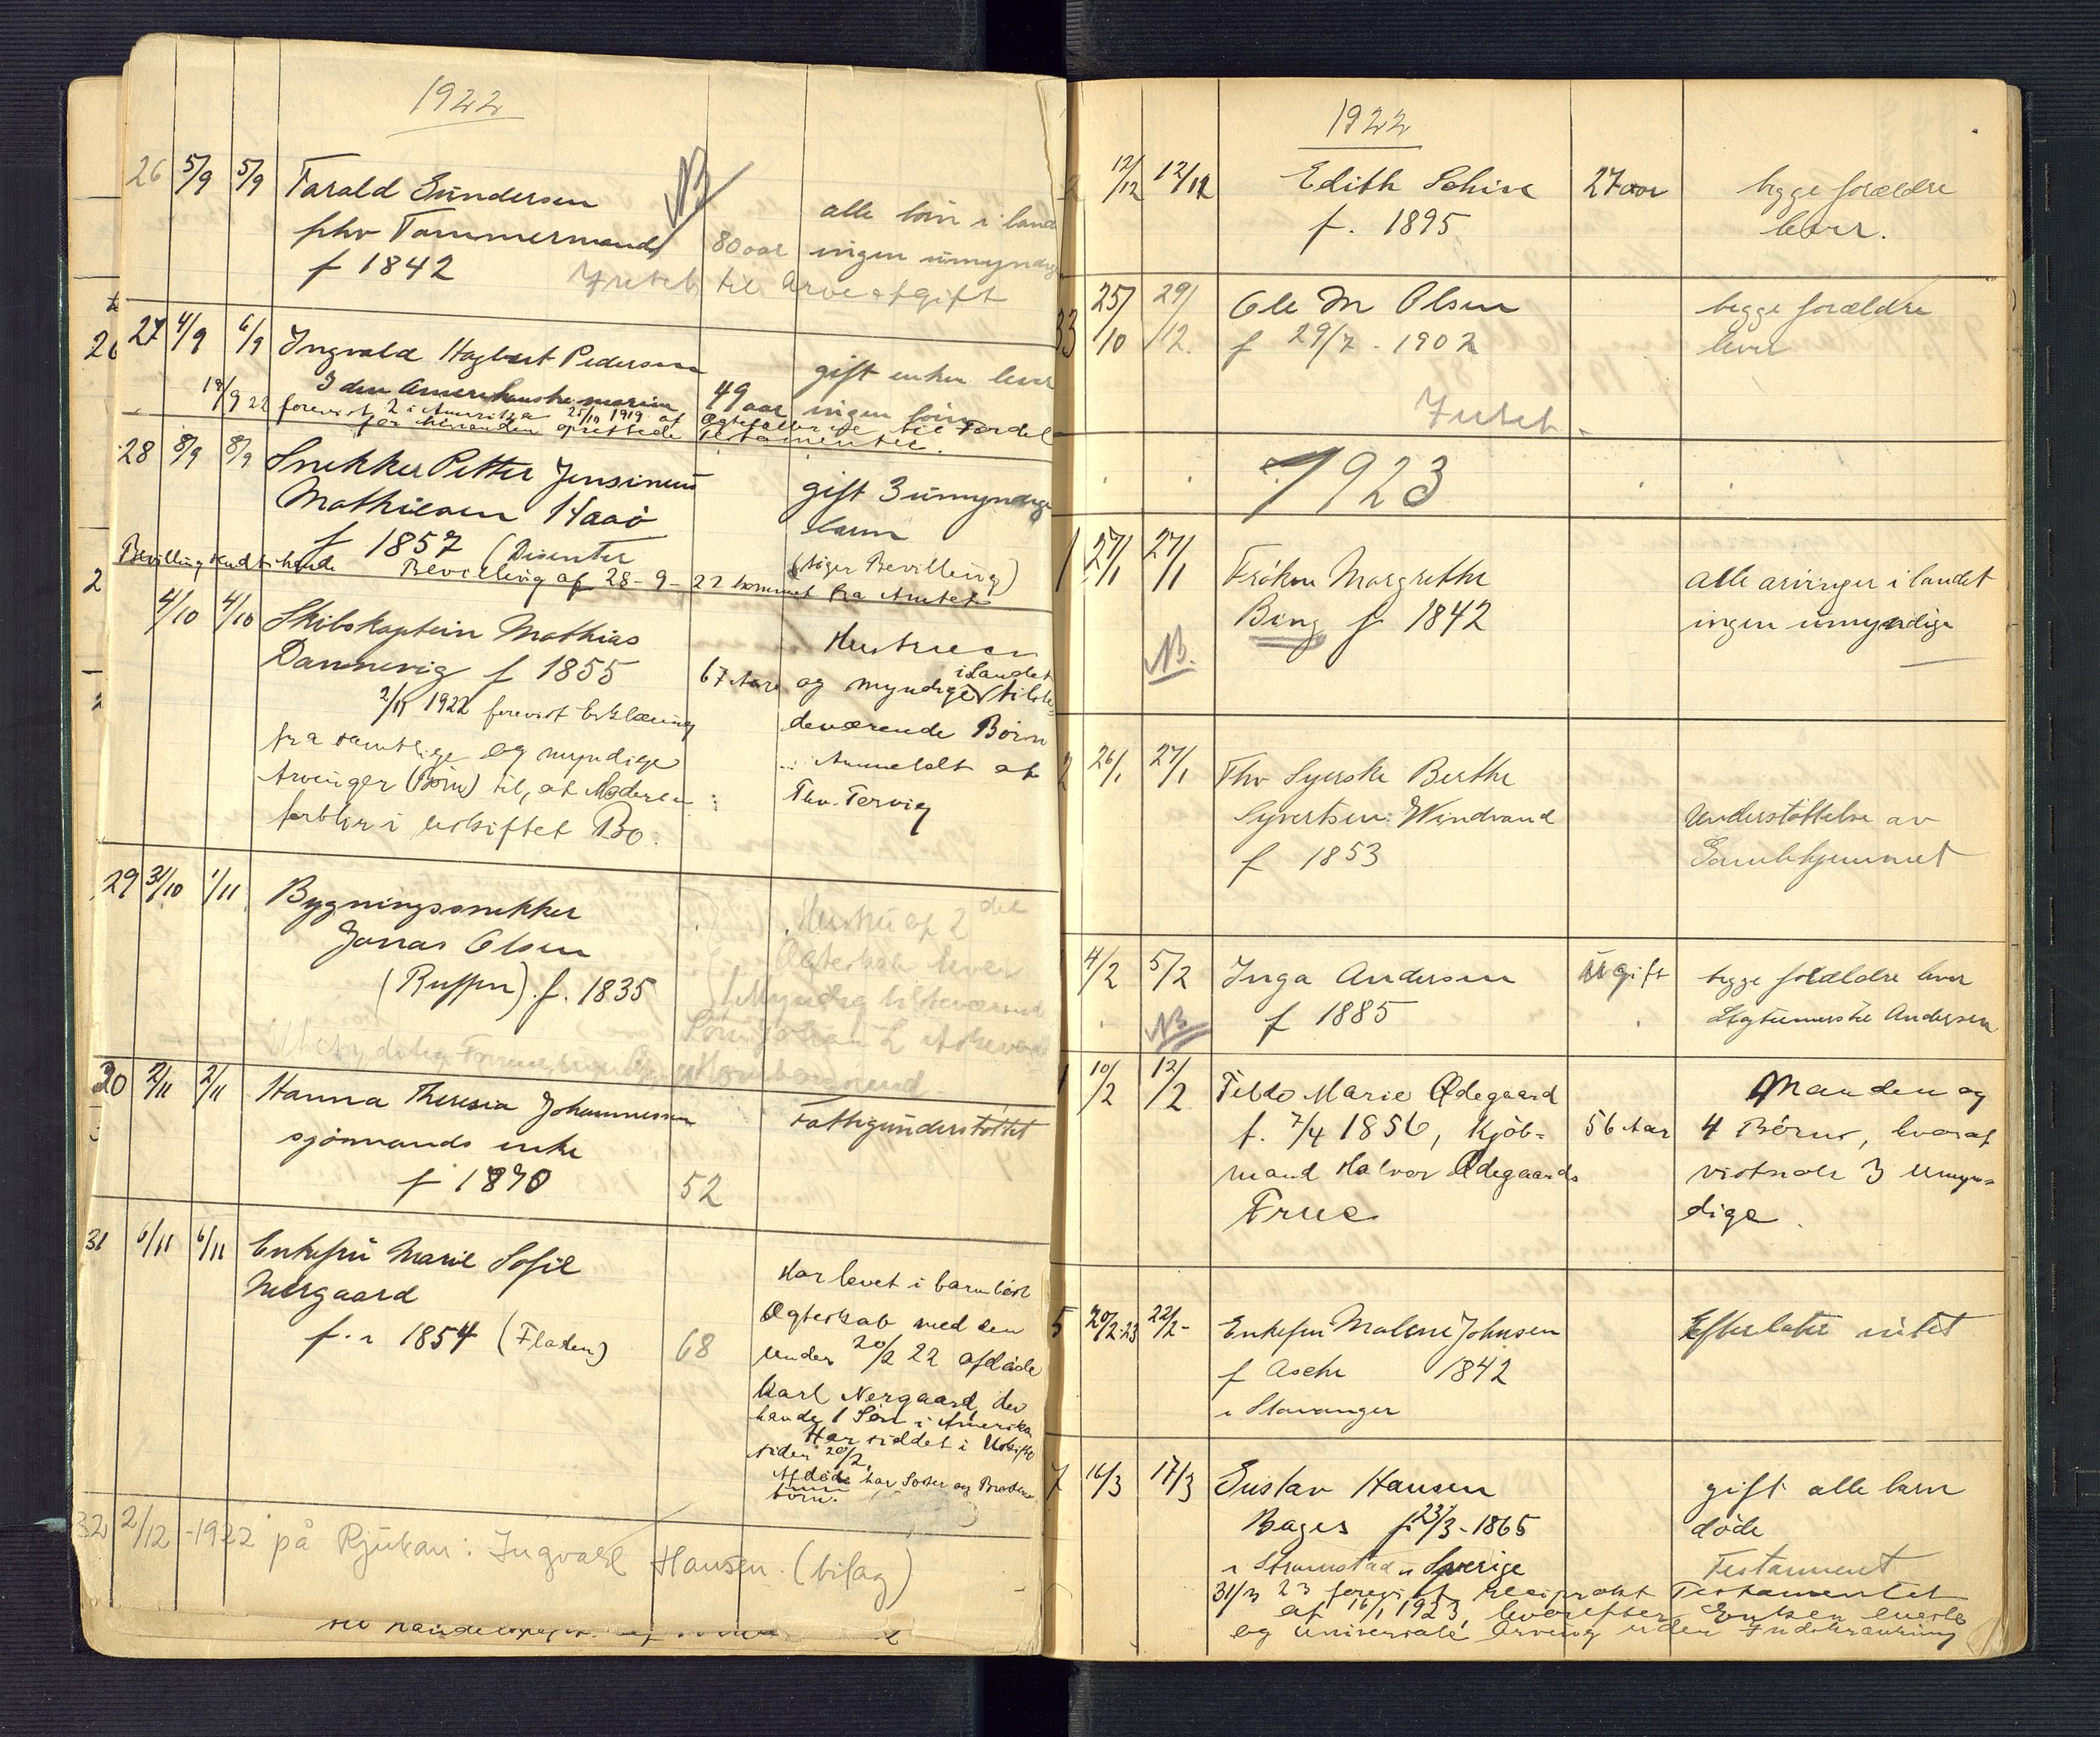 1922
26 5/9 5/9 Tarald Gundersen NB
fhv Tømmermand 80 aar
f 1842
alle børn i land
ingen umyndig
Intet til Arveafgift
27 4/9 6/9 Ingvald Hagbart Pedersen
I den Amerikanske marin 49 aar
gift enken lever
ingen børn
19/9 22 forevist 2 i Amerika 25/10 1919 af Ægtefællerne til Fordel
for hinanden oprettede Testamenter.
28 8/9 8/9 Snekker Petter Jensinius
Mathiesen Haaø
f 1857 (Disenter
gift 3 umyndige
barn
(søger Bevilling)
Bevilling ihende Bevilling af 28-9-22 kommet fra Amtet
4/10 4/10 Skibskaptein Mathias
Dannevig f 1855 67 Aar
2/11 1922 forevist Erklæring
fra samtlige og myndige
Arvinger (Børn) til, at Moderen
forblir i uskiftet Bo.
Hustruen
i Landet
og myndige tilste-
deværende Børn
Anmeldt af
Thv. Tervig
29 31/10 1/11 Bygningssnekker
Jonas Olsen
(Ruffen). f. 1835
Hustru af 2 det
Ægteskab lever
30 2/11 2/11 Hanna Theresia Johannessen
sjømands enke
f 1870 52
Fattigunderstøttet
31 6/11 6/11 Enkefru Marie Sofie
Nergaard
f. i 1854 (Fladen) 68
Har levet i barnløst
Ægteskab med den
under 20/2 22 afdøde
Karl Nergaard, der
havde 1 Søn i Amerika
Har siddet i Uskifte
siden 20/2.
Afdøde har Søster og Broder
børn.
32 2/12 -1922 på Rjukan: Ingvald Hansen. (bilag)
1922
12/12 12/12 Edith Schive 27 aar
f. 1895
begge forældre
lever.
33 25/10 29/12. Ole M Olsen
f 29/7 - 1902
begge forældre
lever
Intet.
1923
1 27/1 27/1 Frøken Margrethe
Bing f 1842
NB.
alle arvinger i landet
ingen umyndige
2 26/1 27/1 Fhv Syerske Berthe
Syvertsen Windvand
f 1853
Understøttelse av
Gamlehjemmet
4/2 5/2 Inga Andersen ugift
f 1885
NB
begge forældre lever
Andersen
10/2 12/2 Marie Ødegaard
f. 7/4 1856, Kjøb- 56 Aar
mand Halvor Ødegaards
Frue
Manden og
4 Børn, hvoraf
vistnok 3 umyn-
dige.
5 20/2 23 22/2- Enkefru Malene Johnsen
f Aske 1842
i Stavanger
Efterlater intet
7 16/3 17/3 Gustav Hansen
Bages f. 23/3-1865
i Strømstad i Sverige
gift alle barn
døde
Testament
31/3 23 forevist reciprokt Testamentet
af 16/1 1923, hvorefter Enken eneste
og universale Arving uden Indskrænkning